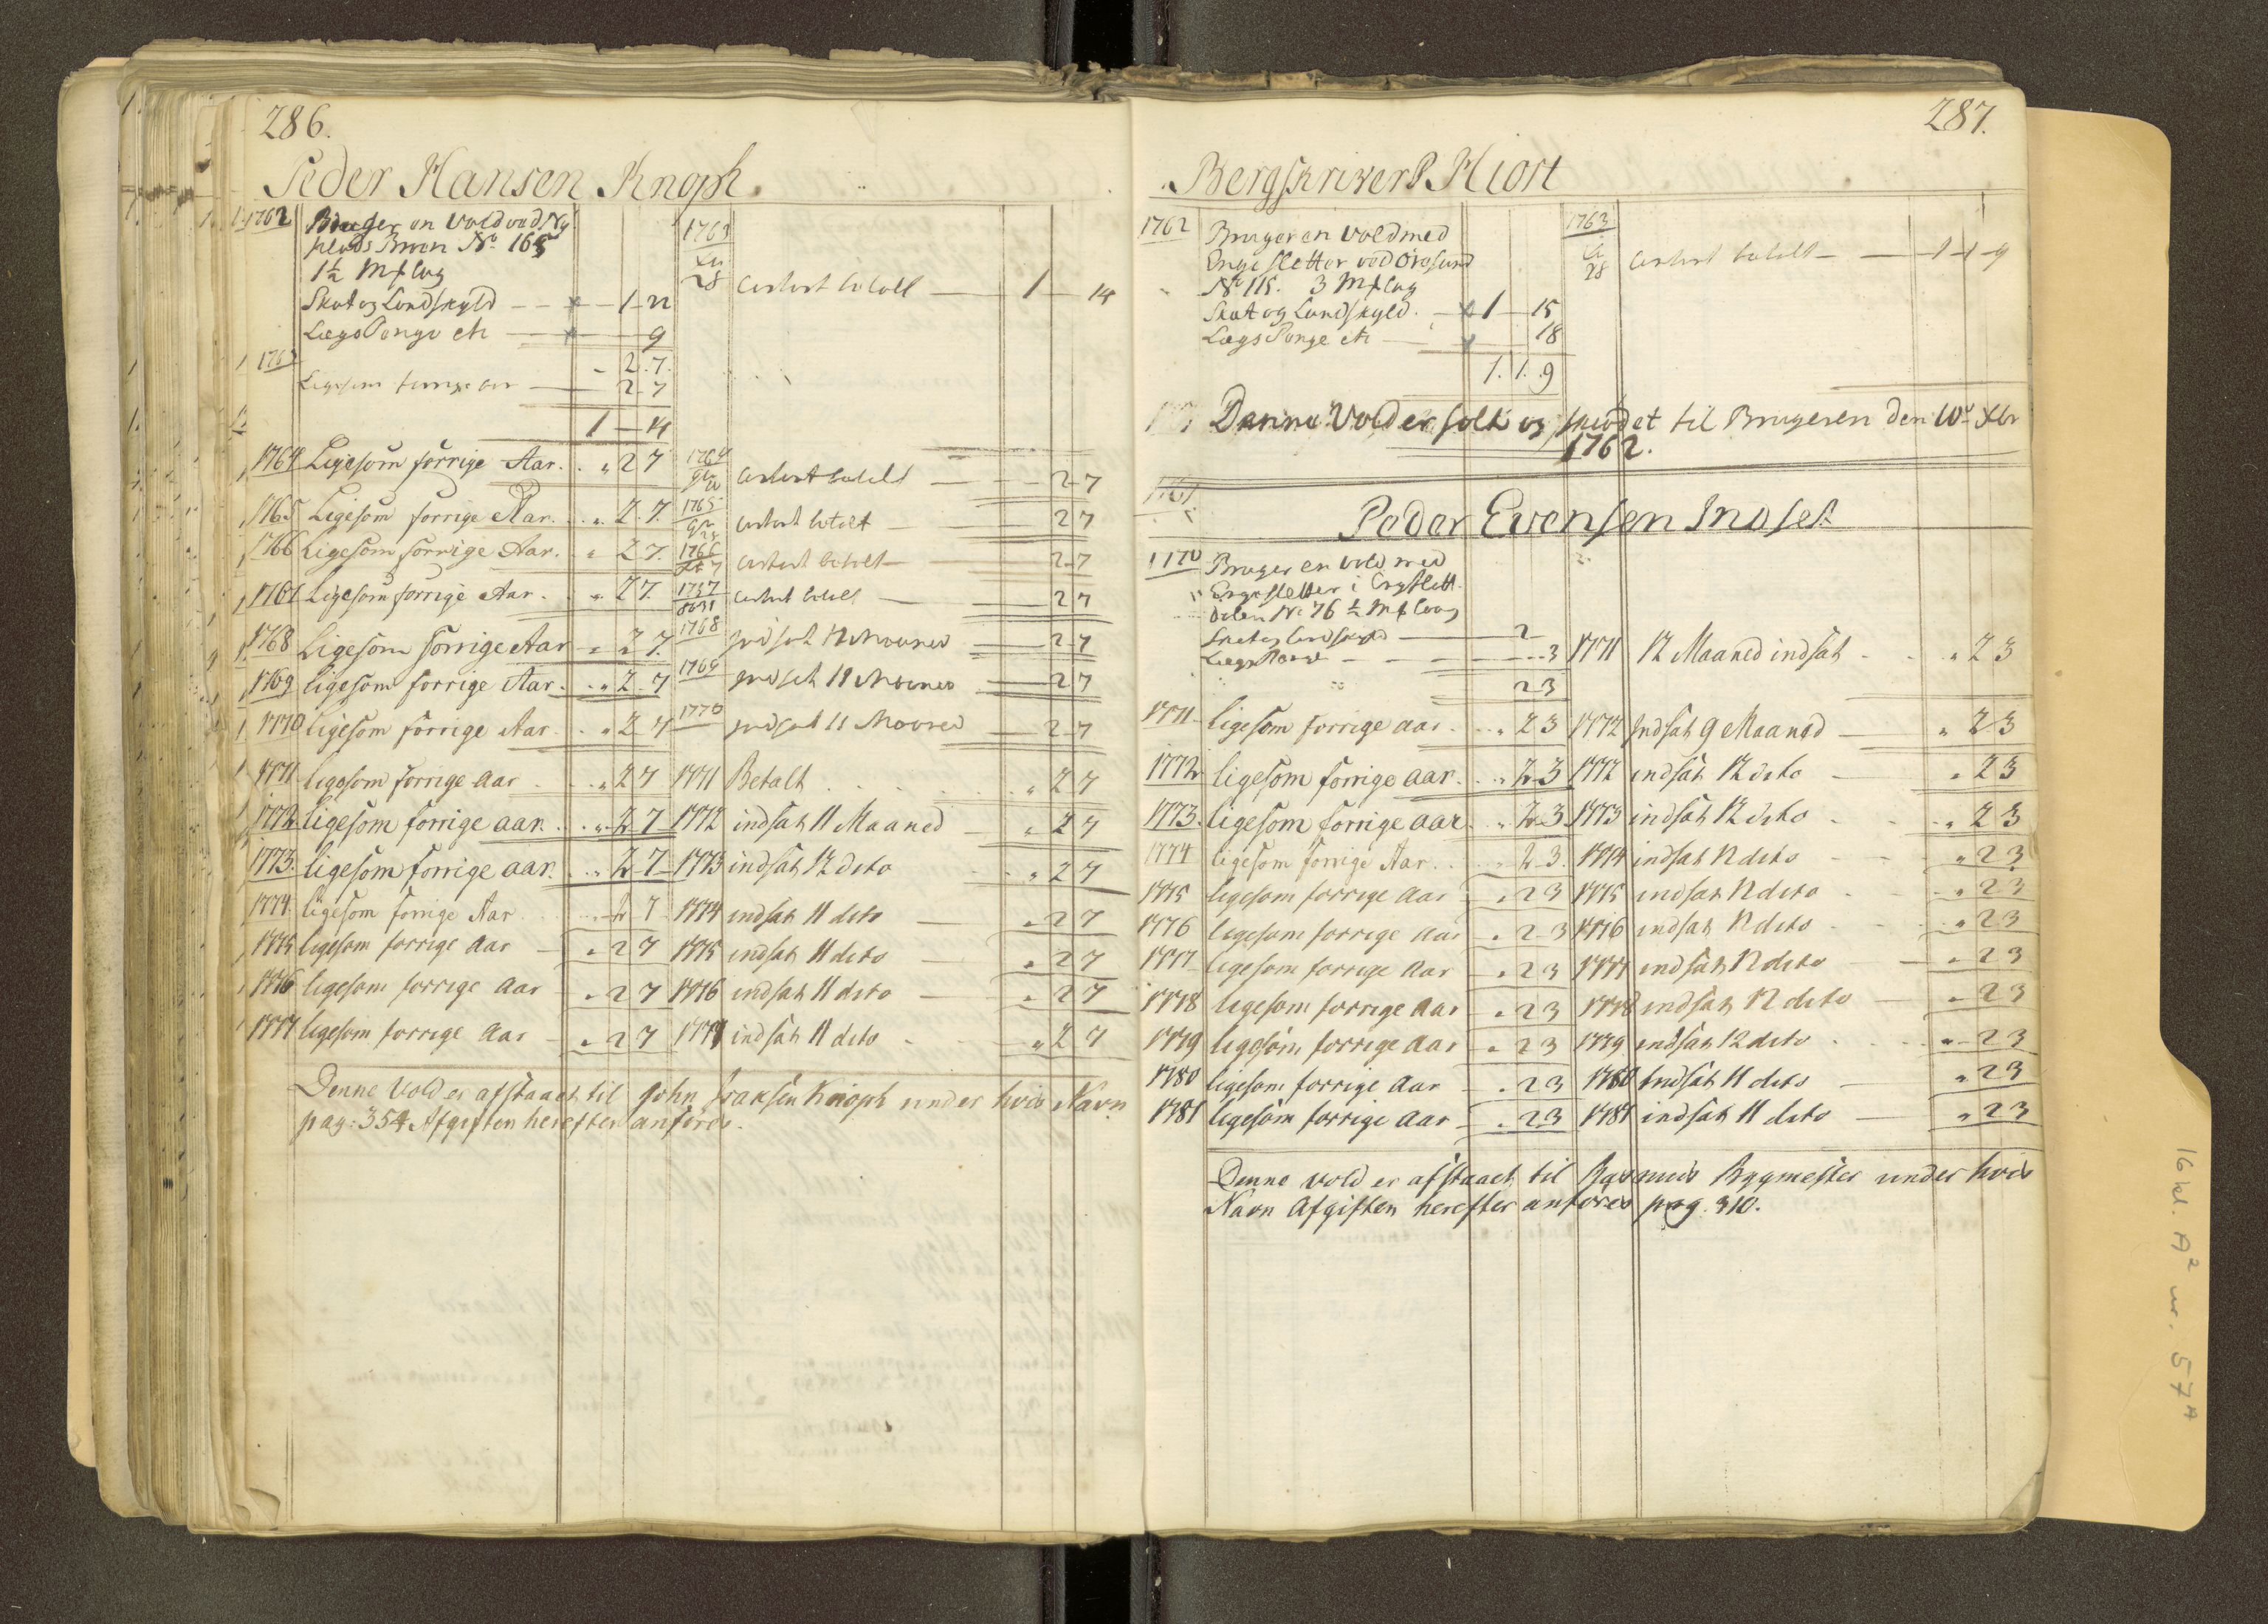 286.
Peder Hansen Knoph.
1762 Bruger en Vold ved Ny
plads Broen No 165
1½ Mk lag
Skat og Landskyld — 1 - 22
Lægs Penge etc — 9
2. 7.
1763 Ligesom forrige aar — 2 - 7
1 — 14
1763 28 contant betalt — 1 — 14
1764 Ligesom forrige Aar. „ 2 7 1764 contant betalt — 2 - 7
1765 Ligesom forrige Aar. „ 2. 7. 1765 contant betalt — 2 7
1766 Ligesom forrige Aar. „ 2 7. 1766 contant betalt — 2 - 7
1767 Ligesom forrige Aar. „ 2 7. 1767 contant betalt — 2 7
1768 Ligesom forrige Aar „ 2 7. 1768 indsat 12 Maaned — 2 - 7
1769 ligesom forrige Aar. „ 2 - 7 1769 indsat 11 Maaned — 2 7
1770 ligesom forrige Aar. „ 2 7 1770 indsat 11 Maaned — 2 - 7
1771 ligesom forrige aar „ 2 7 1771 Betalt . . . „ 2 7
1772 ligesom forrige aar. „ 2 7 1772 indsat 11 Maaned — „ 2 7
1773. ligesom forrige aar. „ 2 7 1773 indsat 12 dito „ 2 7
1774 ligesom forrige Aar „ 2 7 1774 indsat 11 dito — „ 2 7
1775 ligesom forrige Aar — „ 2 7 1775 indsat 11 dito — „ 2 7
1776 ligesom forrige Aar — „ 2 7 1776 indsat 11 dito — „ 2 7
1777 ligesom forrige Aar — „ 2 7 1777 indsat 11 dito „ 2 7
Denne Vold er afstaaet til John Isaksen Knoph under hvis Navn
pag: 354 Afgiften herefter anføres.
287.
Bergskriver P. Hiort
1762 Bruger en Vold med
Enge sletter ved Øresund
No 115. 3 Mk lag
Skat og Landskyld. — 1 — 15
Lægs Penge etc — 18
1. 1. 9
1763 28 contant betalt — 1 - 1 - 9
Denne Vold er solt og skiødet til Brugeren den 10de Xbr
1762.
Peder Evensen Indset
1770 Bruger en vold med
Enge sletter i
dalen No 76 ½ Mk laug
Skat og Landskyld — 2
Lægs Penge — 3
2 3
1771 12 Maaned indsat „ 2 3
1771 ligesom forrige aar „ 2 3 1772 Indsat 9 Maaned — „ 2 3
1772 ligesom forrige aar. „ 2 3 1772 indsat 12 dito — „ 2 3
1773. ligesom forrige aar „ 2 3 1773 indsat 12 dito „ 2 3
1774 ligesom forrige Aar. „ 2 3. 1774 indsat 12 dito „ 2 3
1775 ligesom forrige Aar „ 2 3 1775 indsat 12 dito „ 2 3
1776 ligesom forrige Aar „ 2 3 1776 indsat 12 dito „ 2 3
1777 ligesom forrige Aar „ 2 3 1777 indsat 12 dito — „ 2 3
1778 ligesom forrige Aar „ 2 3 1778 indsat 12 dito — „ 2 3
1779 ligesom forrige Aar „ 2 3 1779 indsat 12 dito „ 2 3
1780 ligesom forrige Aar — „ 2 3 1780 Indsat 11 dito — „ 2 3
1781 ligesom forrige Aar — „ 2 3 1781 indsat 11 dito — „ 2 3
Denne vold er afstaaet til Rasmus Bygmester under hvis
Navn Afgiften herefter anføres pag. 310.
16 kl. A² nr. 57 A